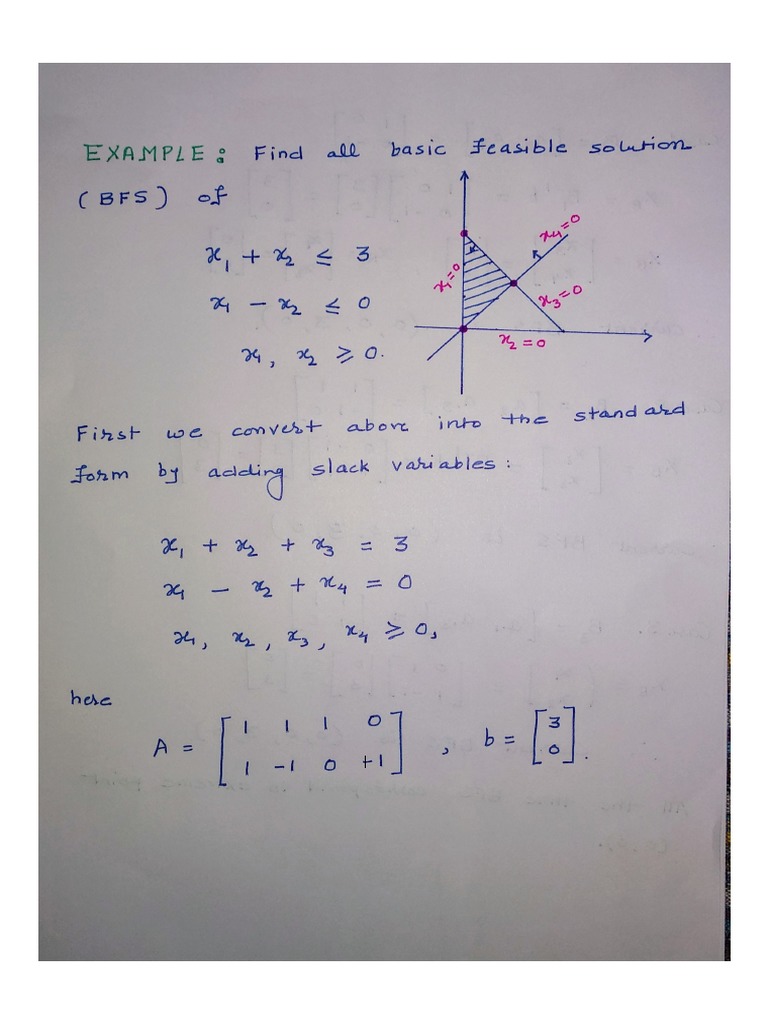 EXAMPLE: Find all basic feasible solution
(BFS) of
x₁ + x₂ ≤ 3
x₁ - x₂ ≤ 0
x₁, x₂ ≥ 0.
x₄=0
x₁=0
x₃=0
x₂=0
First we convert above into the standard
form by adding slack variables:
x₁ + x₂ + x₃ = 3
x₁ - x₂ + x₄ = 0
x₁, x₂, x₃, x₄ ≥ 0,
here
A = [1 1 1 0
1 -1 0 +1], b = [3
0].